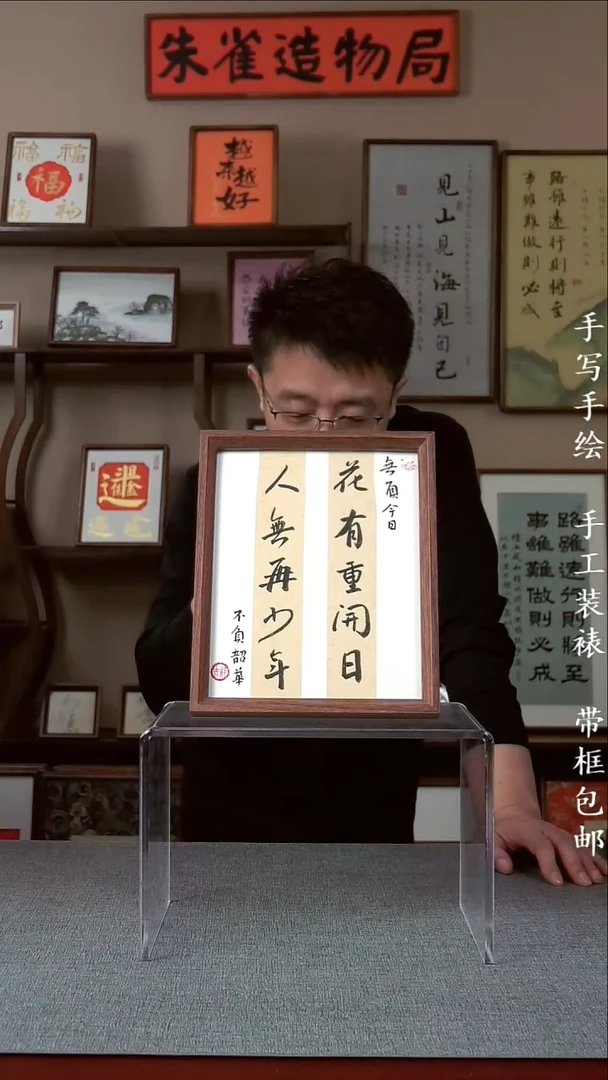 朱雀造物局
福
福
福
福
福
越来越好
見山見海見自己
路雖遠行則將至
事雖難做則必成
無負今日
花有重開日
人無再少年
不負韶華
路雖遠行則將至
事雖難做則必成
手写手绘 手工装裱 带框包邮